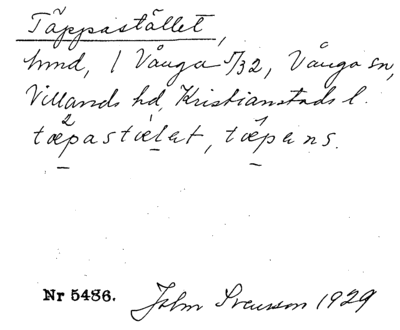 Täppastället,
hmd, 1 Vånga 5/32, Vånga sn,
Villands hd, Kristianstads l.
tæpastælet, tæpens.
Nr 5486. John Svensson 1929